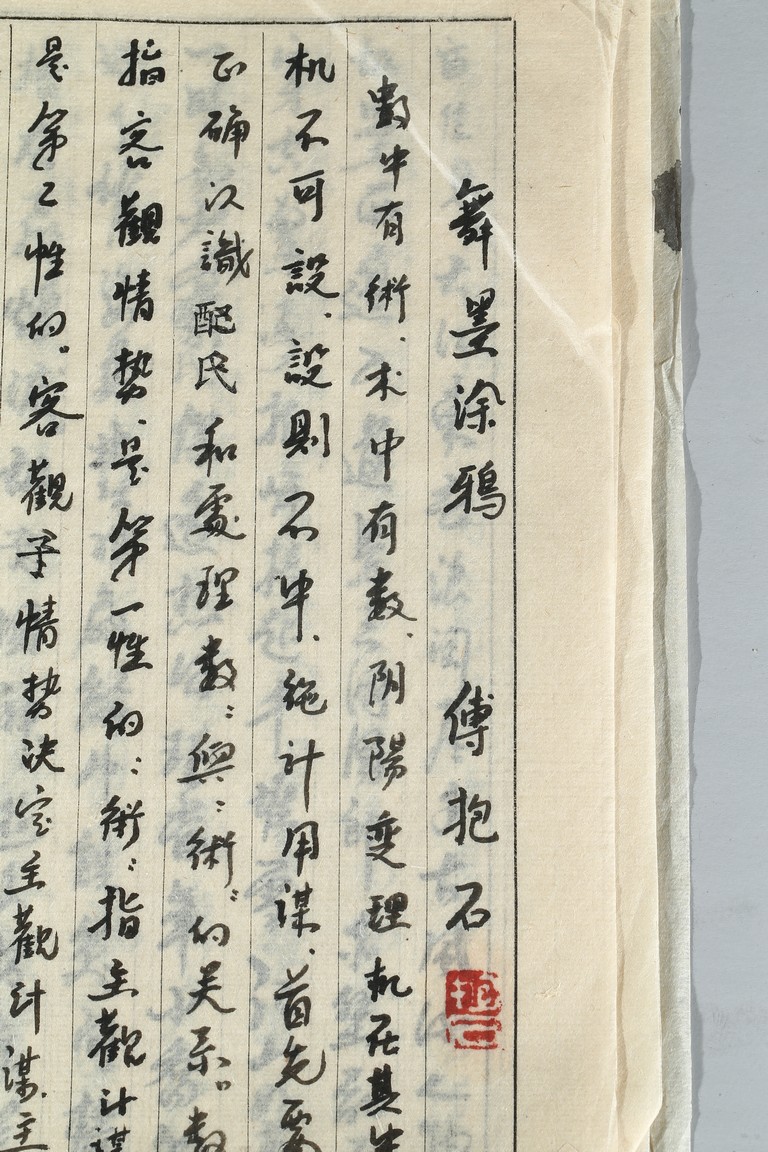 舞墨涂鴉 傅抱石 抱石
數中有術、术中有数、阴陽变理机在其中
机不可設、設則不中、绝计用谋、首先要
正确认識 和處理数"與"術"的关系。数
指客觀情势、是第一性的"術"指主觀计謀
是第二性的。客觀 情势决定主觀计谋、主